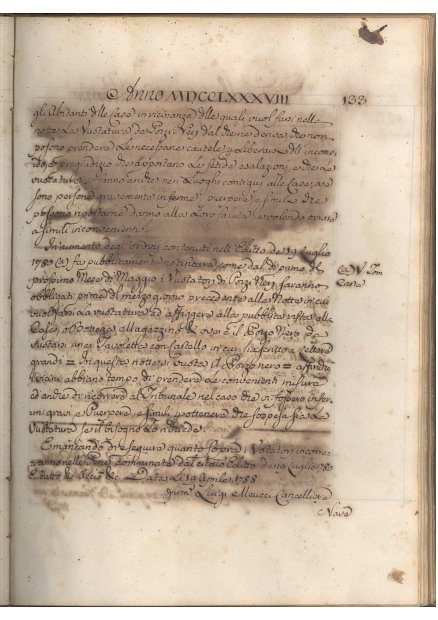 Anno MDCCLXXXVIII 133
gli Abitanti delle Case in vicinanza delle quali vuol farsi nelle
notte La Vuotatura de Pozzi Neri dal che ne deriva, che non
possono prendere Le necessarie cautele p Liberarsi dall incomo
do, e pregiudizio che apportano Le fetide esalazioni, e che Le
vuotature si fanno anche nei Luoghi contigui alle Case, ove
sono persone gravemente inferme, puerpere, e simili che
possono riportarne danno alla Loro salute, e volendo ovviare
a simili inconvenienti.
In aumento degl'ordini contenuti nell Editto de 19 Luglio
1780 (a) fa pubblicamente notificare, come dal dì primo del
prossimo Mese di Maggio i Vuotatori di Pozzi Neri saranno
obbligati prima del mezzo giorno precedente alla Notte in cui
vuol farsi La vuotatura ad affiggere alla pubblica vista alla
Casa, o Bottega, o Magazzino ove è il Pozzo Nero da
vuotarsi una Tavoletta, o Cartello in cui sia scritto a Lettere
grandi = In questa notte si vuota il Pozzo nero = affinchè
i vicini abbiano tempo di prendere Le convenienti misure
ed anche di ricorrere al Tribunale nel caso che vi fossero infer
mi gravi, e Puerpere, e simili p ottenere che sospesa sia La
Vuotatura se il bisogno Lo richiede.
E mancando di eseguire quanto sopra i Votatori incorre
ranno nelle Pene comminate dal citato Editto de 19 Luglio 1780
E tutto &c. Data Le 19 Aprile 1788
Luigi Meucci Cancelliere
(a) V. Tom
Carte
Nove